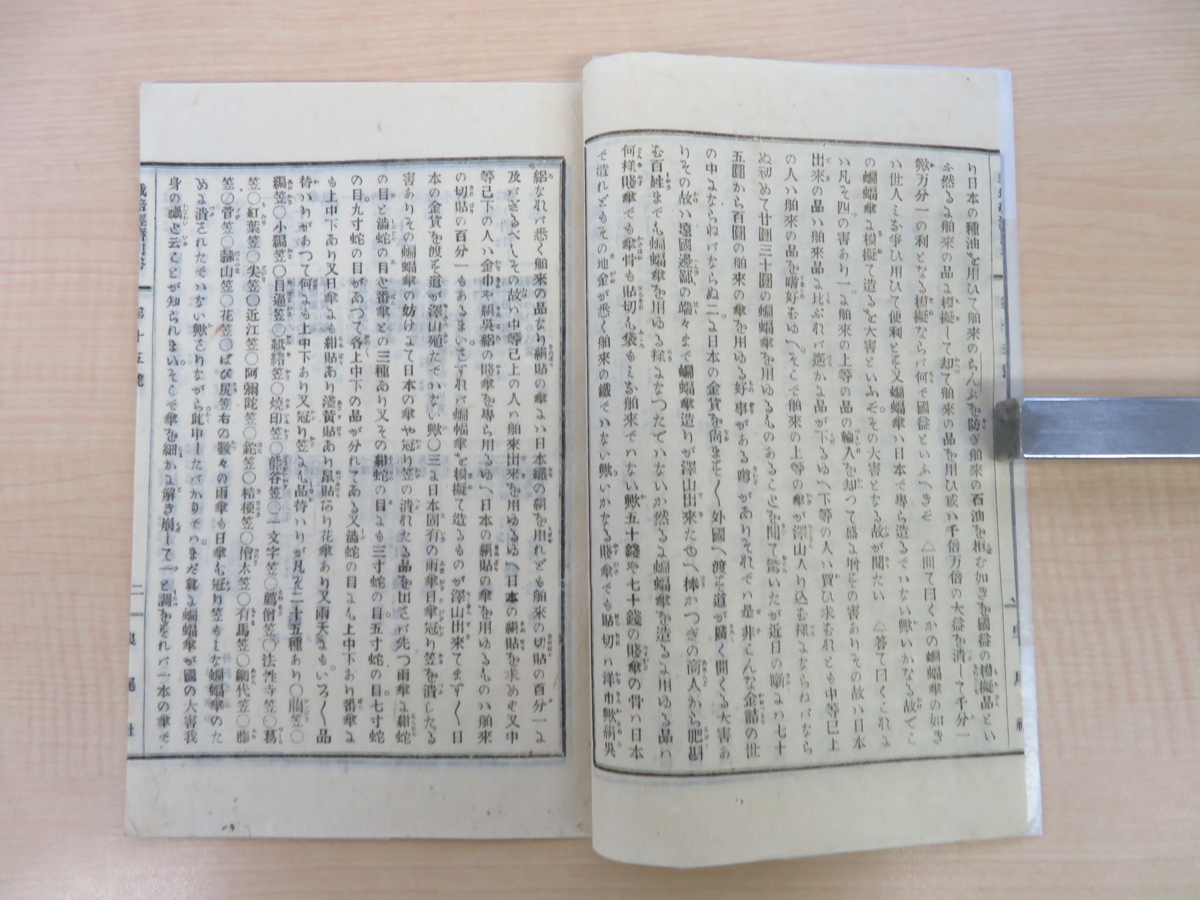 り日本の種油を用ひて舶來のらんぷを防ぎ舶來の石油を拒む如きを國益の模擬品とい
ふ然るよ舶來の品よ模擬して却て舶來の品を用ひ或ハ千倍万倍の大益を潰して千分一
歟万分一の利となる模擬ならバ何で國益といふべきぞ △問て曰くかの蝙蝠傘の如き
ハ世人ミな爭ひ用ひて便利とを又蝙蝠傘ハ日本で專ら造るでハない歟いかなる故てこ
の蝙蝠傘よ模擬て造るを大害といふぞその大害となる故が聞たい △答て曰くこれよ
ハ凡そ四の害あり一よ舶來の上等の品の輸入を却つて盛よ増その害ありその故ハ日本
出來の品ハ舶來品よ比ぶれバ遙かよ品が下るゆへ下等の人ハ買ひ求むれとも中等已上
の人ハ舶來の品を嗜好むゆへそこで舶來の上等の傘が澤山入り込む樣よならねバなら
ぬ初めて廿圓三十圓の蝙蝠傘を用ゆるものあることを聞て驚いたが近日の噺よハ七十
五圓から百圓の舶來の傘を用ゆる好事がある噂がありそれでハ是非こんな金詰の世
の中よならねバならぬ二よ日本の金貨を尚ます〱外國へ渡を道が廣く開くる大害あ
りその故ハ遠國邊鄙の端々まで蝙蝠傘造りが澤山出來たゆへ棒かつぎの商人から肥斟
む百姓までも蝙蝠傘を用ゆる樣よなつたでハないか然るよ蝙蝠傘を造るよ用ゆる品ハ
何樣賤傘でも傘骨も貼切も袋もミな舶來でハない歟五十錢や七十錢の賤傘の骨ハ日本
で造れどもその地金が悉く舶來の鐵でハない歟いかなる賤傘でも貼切ハ洋巾歟絹吳
絽なれバ悉く舶來の品なり絹貼の傘よハ日本織の絹を用れども舶來の切貼の百分一よ
及バざるべしその故ハ中等已上の人ハ舶來出來を用ゆるゆへ日本の絹貼を求めを又中
等已下の人ハ金巾や絹吳絽の賤傘を專ら用るゆへ日本の絹貼の傘を用ゆるものハ舶來
の切貼の百分一もあるまいさすれバ蝙蝠傘よ模擬て造るものが澤山出來てます〱日
本の金貨を渡を道が澤山殖たでハない歟〇三よ日本固有の雨傘日傘冠り笠を潰したる
害ありその蝙蝠傘の妨けよて日本の傘や冠り笠の潰れたる品を出さバ先つ雨傘よ紺蛇
の目と澁蛇の目と番傘との三種あり又その紺蛇の目よも三寸蛇の目五寸蛇の目七寸蛇
の目九寸蛇の目があつて各上中下の品が分れてある又澁蛇の目よも上中下あり番傘よ
も上中下あり又日傘よも紺貼あり淺黄貼あり鼠貼あり花傘あり又兩天よも、いろ〱品
替ハりがあつて何よも上中下あり又冠り笠よも品替ハりが凡そ二十五種あり〇簡笠〇
編笠〇小編笠〇目逼笠〇紙縒笠〇燒印笠〇熊谷笠〇一文字笠〇薦僧笠〇法性寺笠〇葛
笠〇紅葉笠〇尖笠〇近江笠〇阿彌陀笠〇鉈笠〇桔梗笠〇檜木笠〇有馬笠〇網代笠〇藤
笠〇菅笠〇蒜山笠〇花笠〇ばび尻笠右の數々の雨傘も日傘も冠り笠もミな蝙蝠傘のた
めよ潰されたでハない歟さりながら此申したバかりでハまだ眞よ蝙蝠傘が國の大害我
身の禍と云ことが知られまいそこで傘を細かよ解き崩して一と調をそれバ一本の傘で
二
社